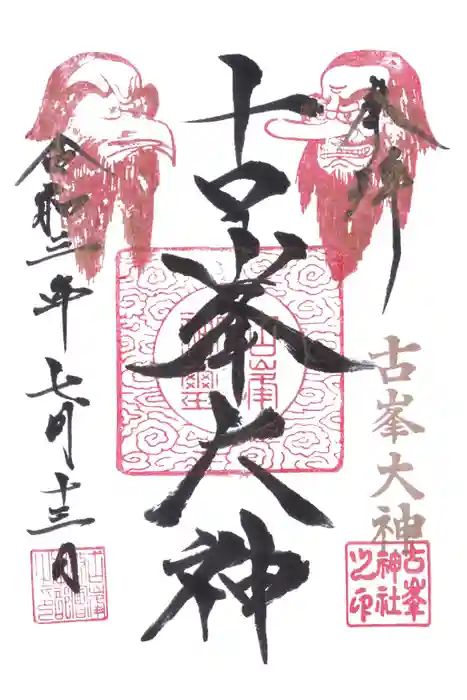 奉拝
古峯大神
古峯大神
古峯
神社
之印
令和二年七月十三日